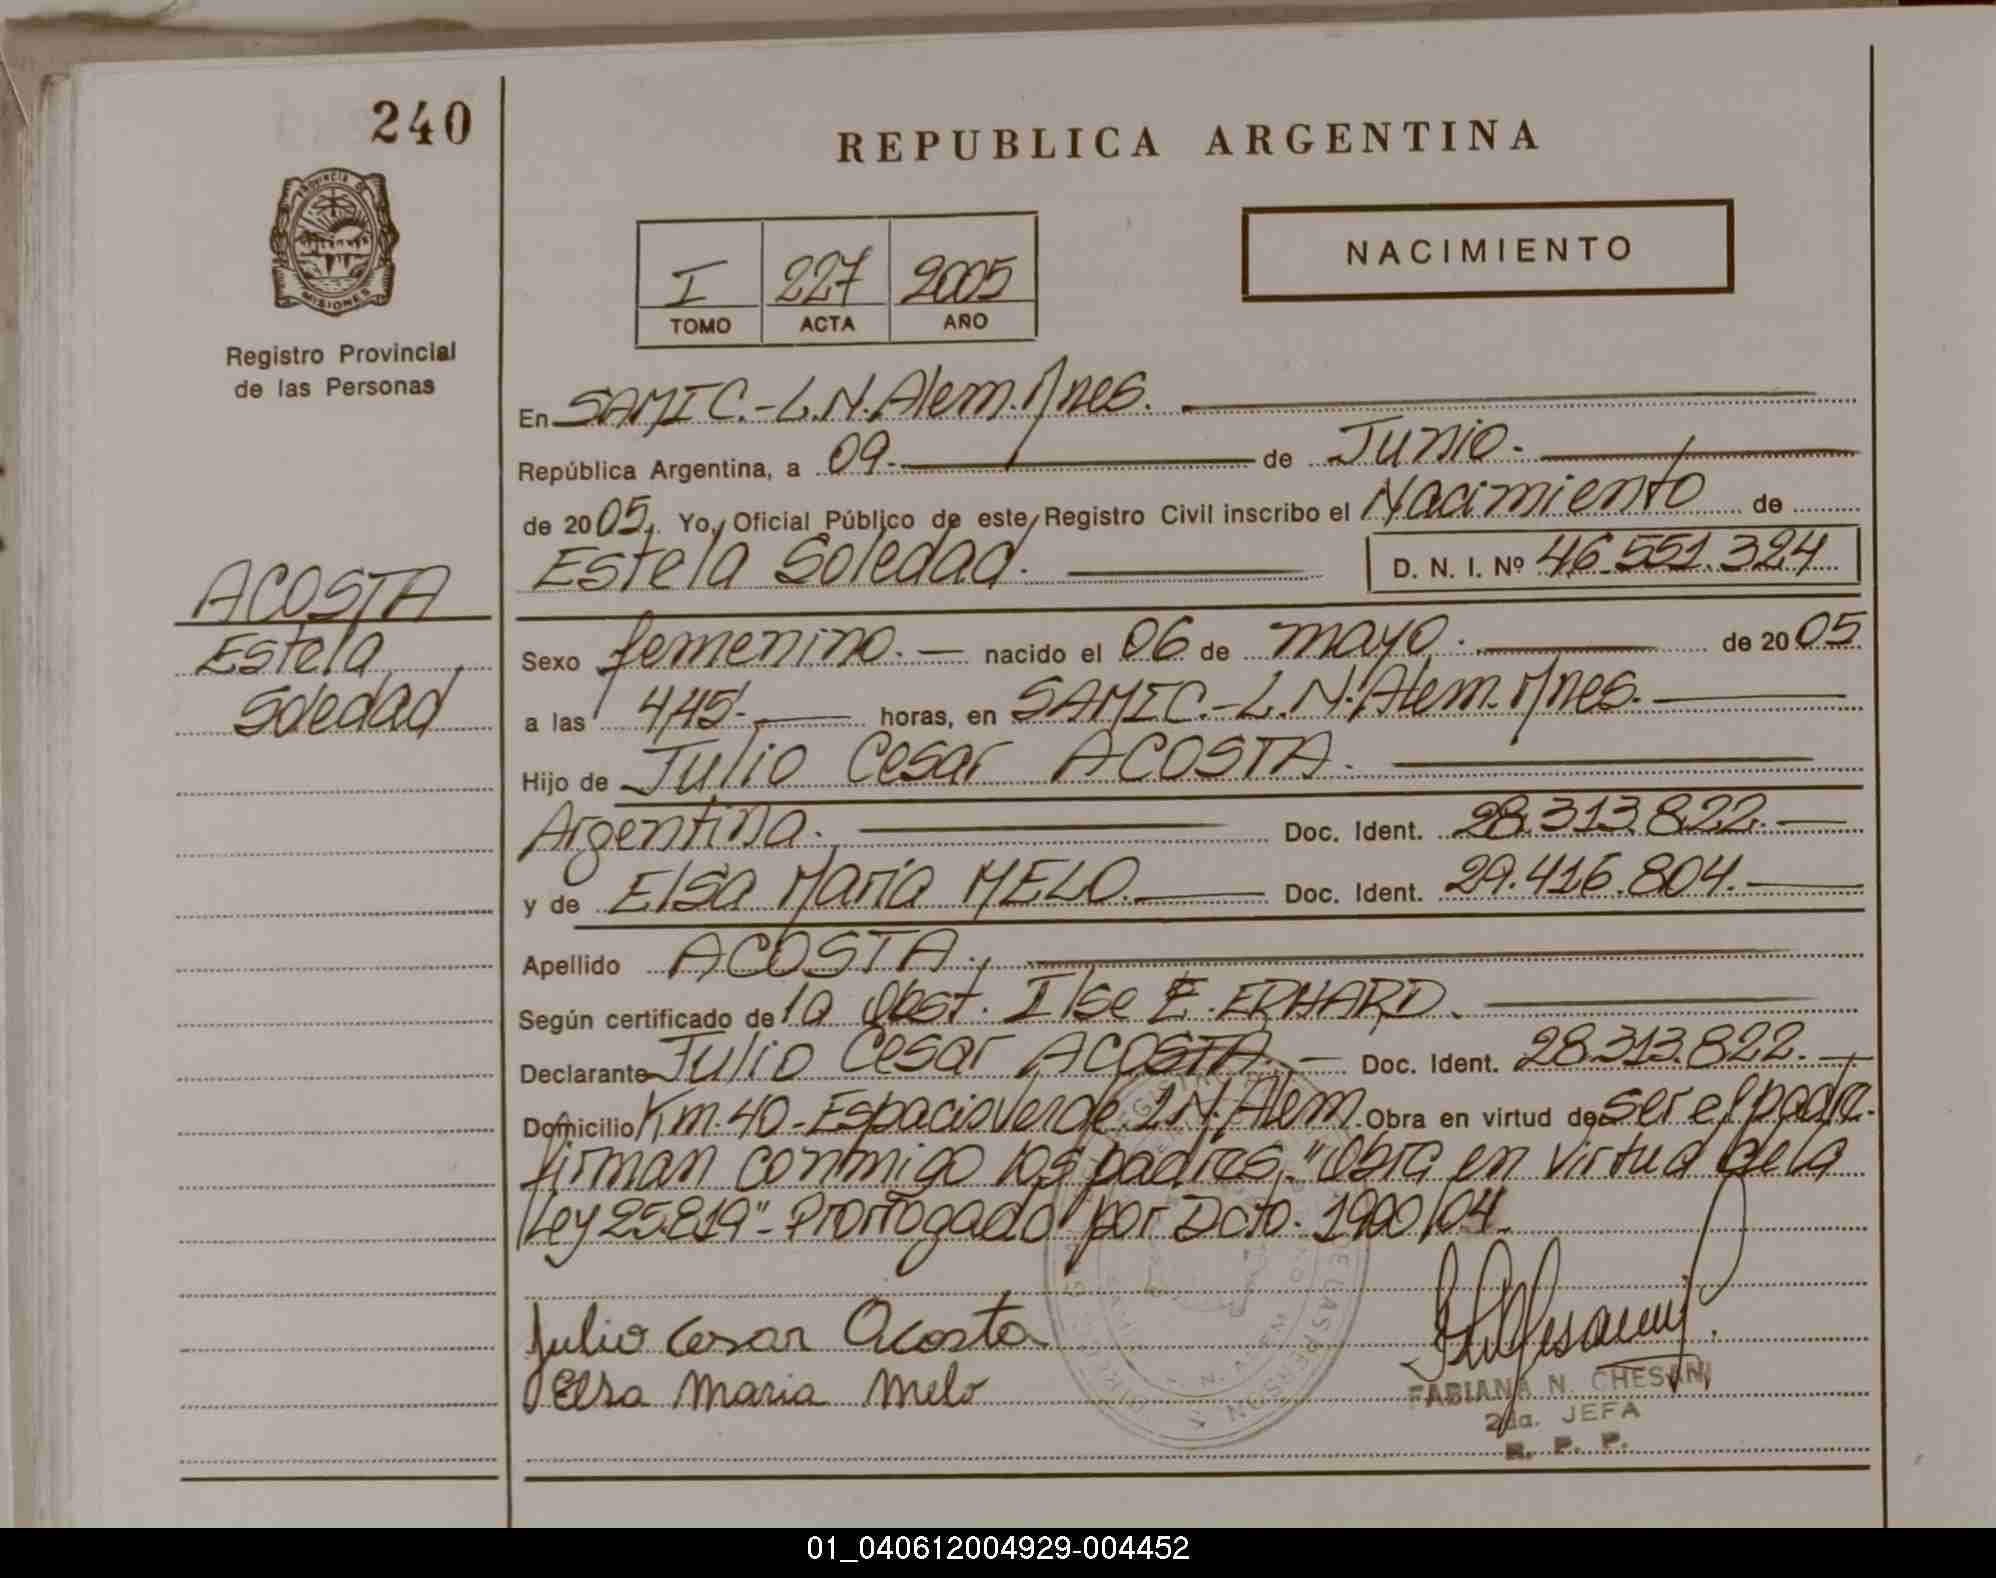 240
REPUBLICA ARGENTINA
PROVINCIA DE
MISIONES
Registro Provincial
de las Personas
NACIMIENTO
I 227 2005
TOMO ACTA AÑO
En SAMIC.-L.N.Alem.Mnes.
República Argentina, a 09. de Junio.
de 2005. Yo, Oficial Público de este Registro Civil inscribo el Nacimiento de
Estela Soledad. D. N. I. Nº 46.551.324
ACOSTA
Estela
Soledad
Sexo femenino. nacido el 06 de mayo. de 2005
a las 4,45. horas, en SAMIC.-L.N.Alem.Mnes.
Hijo de Julio Cesar ACOSTA.
Argentina. Doc. Ident. 28.313.822.
y de Elsa Maria MELO. Doc. Ident. 29.416.804.
Apellido ACOSTA.
Según certificado de la Obst. Ilse E. ERHARD.
Declarante Julio Cesar ACOSTA. Doc. Ident. 28.313.822.
Domicilio Km.40-Espacio Verde. L.N.Alem. Obra en virtud de ser el padre.
firman conmigo los padres. "Obra en virtud de la
Ley 25.819"- Prorrogado por Dcto. 1900/04.
Julio Cesar Acosta
Elsa Maria Melo
FABIANA N. CHESANI
2da. JEFA
R. P. P.
01_040612004929-004452